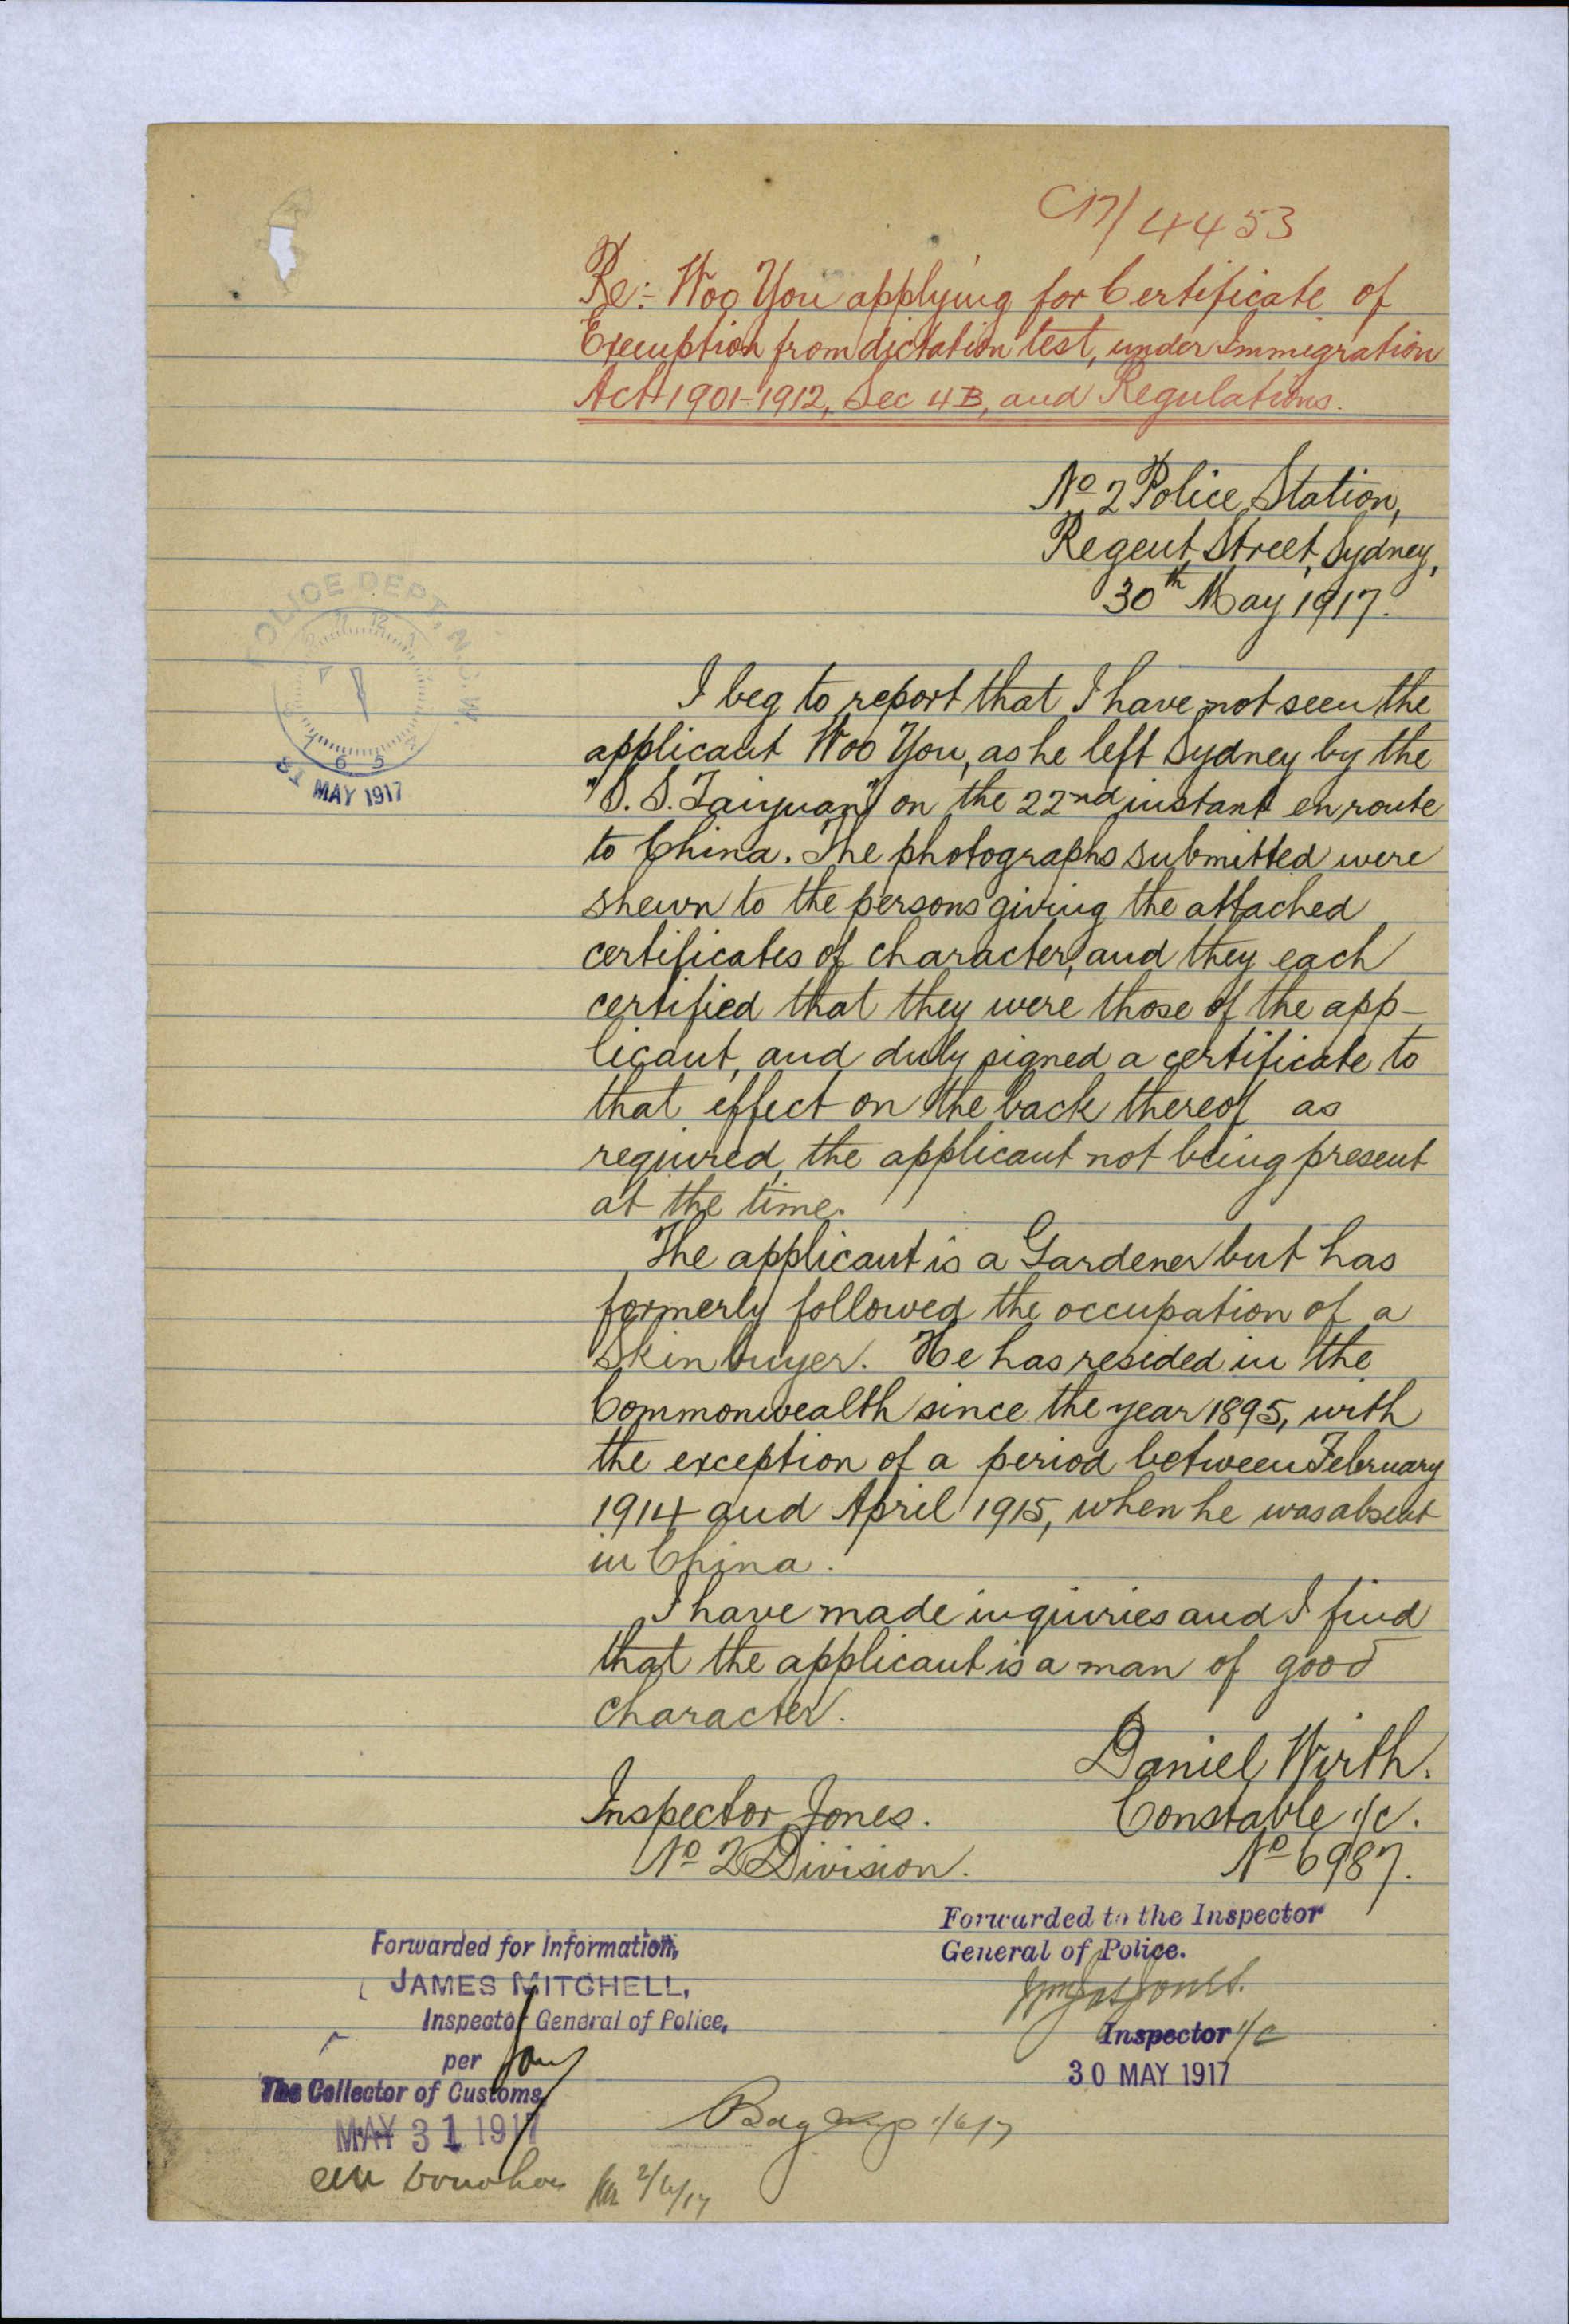 C17/4453
Re:- Woo You applying for Certificate of
Exemption from dictation test, under Immigration
Act 1901-1912, Sec 4B, and Regulations.
No 2 Police Station,
Regent Street, Sydney,
30th May 1917.
POLICE DEPT, N.S.W.
31 MAY 1917
I beg to report that I have not seen the
applicant Woo You, as he left Sydney by the
"S.S. Taiyuan" on the 22nd instant en route
to China. The photographs submitted were
shewn to the persons giving the attached
certificates of character, and they each
certified that they were those of the app-
licant, and duly signed a certificate to
that effect on the back thereof as
required, the applicant not being present
at the time.
The applicant is a Gardener but has
formerly followed the occupation of a
Skin buyer. He has resided in the
Commonwealth since the year 1895, with
the exception of a period between February
1914 and April 1915, when he was absent
in China.
I have made inquiries and I find
that the applicant is a man of good
character.
Daniel Wirth.
Constable 1/c.
No 6987.
Inspector Jones.
No 2 Division.
Forwarded to the Inspector
General of Police.
Inspector 1/c
30 MAY 1917
Forwarded for Information,
JAMES MITCHELL,
Inspector General of Police,
per
The Collector of Customs,
MAY 31 1917
1/6/17
2/6/17